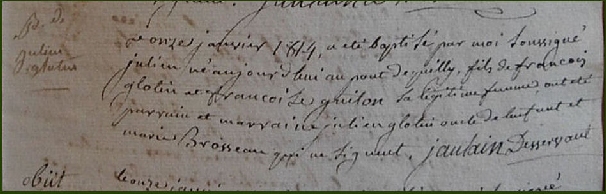 B. de
julien
glotin
Le onze janvier 1814, a été baptisé par moi soussigné
julien né aujourd'hui au pont de spilly, fils de francois
glotin et francoise guilon sa légitime femme ont été
parrain et marraine julien glotin oncle de l'enfant et
marie Brosseau qui ne signent. jaulain Desservant
obiit
le onze